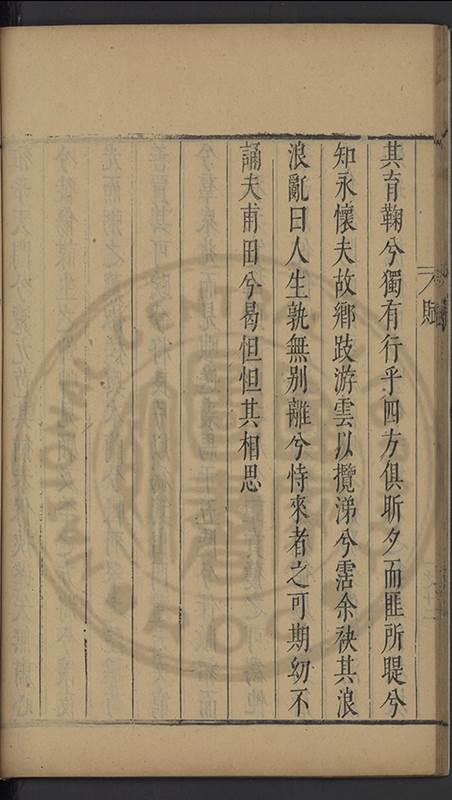 其育鞠兮獨有行乎四方俱昕夕而匪所踶兮
知永懷夫故鄉跂游雲以攬涕兮霑余袂其浪
浪亂曰人生孰無别離兮恃來者之可期幼不
誦夫甫田兮曷怛怛其相思
賦